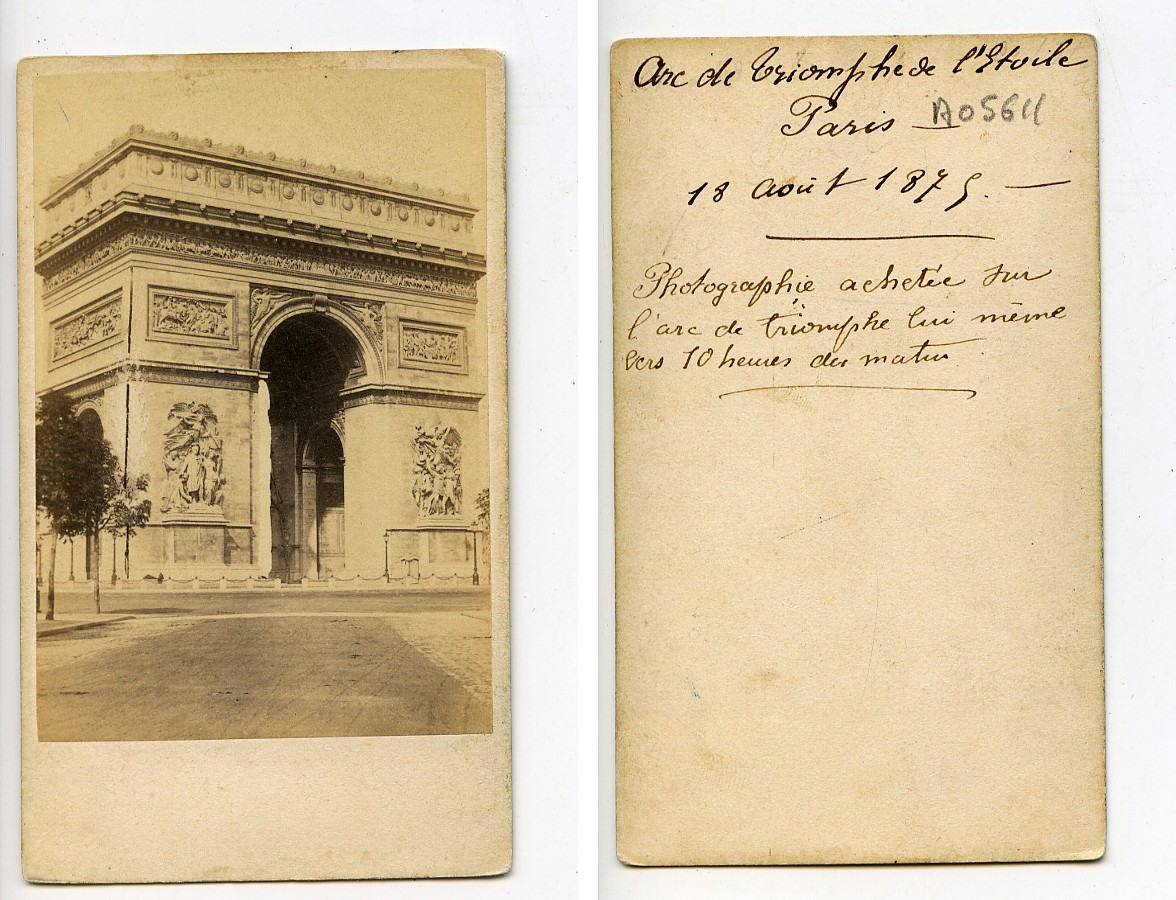 Arc de Triomphe de l'Etoile
Paris — A05611
18 août 1875. —
Photographie achetée sur
l'arc de triomphe lui même
vers 10 heures du matin